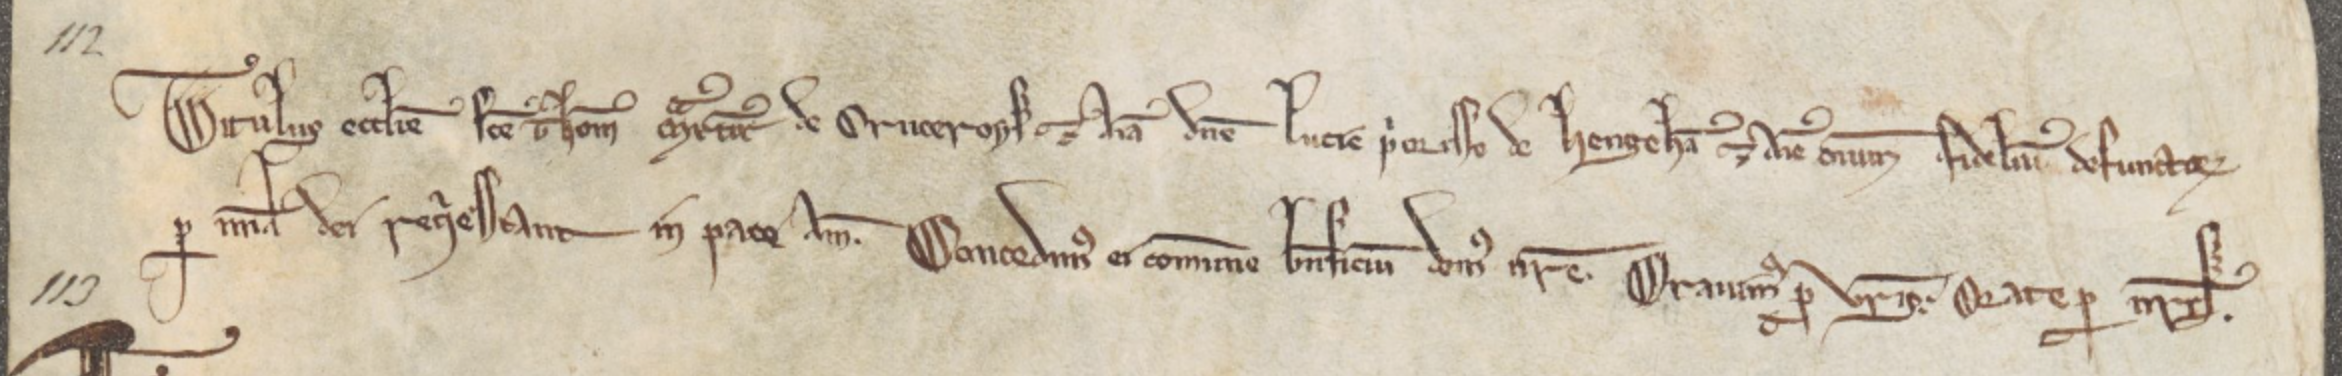 112
Titulus ecclie sce Thom mrtir de Cruceroys ⁊ Aia dne Lucie p'orisse de Hengeham ⁊ Aie omium fidelium defunctoꝝ
p miam dei reqiescant in pace Am. Concedim' ei comune bnficium dom' nre. Orauim' p vris. Orate p nris.
113